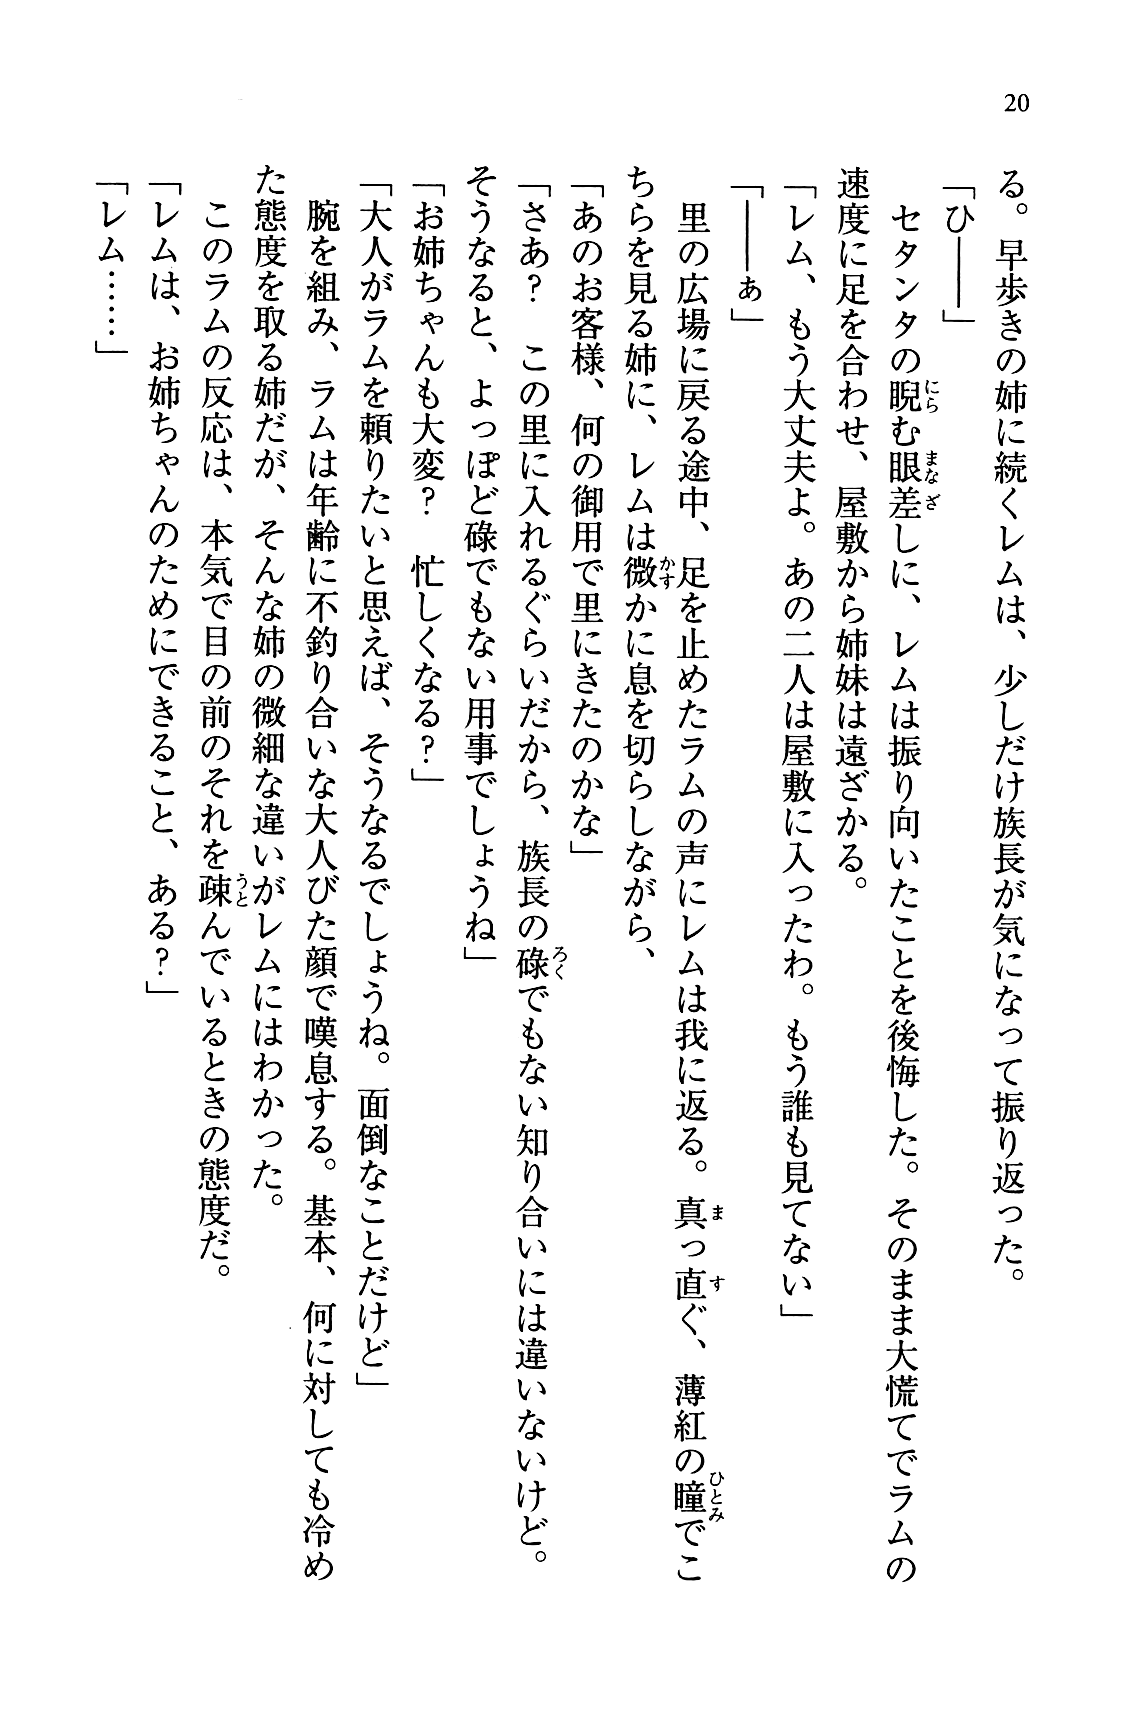 20
る。早歩きの姉に続くレムは、少しだけ族長が気になって振り返った。
「ひ――」
　セタンタの睨む眼差しに、レムは振り向いたことを後悔した。そのまま大慌てでラムの
速度に足を合わせ、屋敷から姉妹は遠ざかる。
「レム、もう大丈夫よ。あの二人は屋敷に入ったわ。もう誰も見てない」
「――ぁ」
　里の広場に戻る途中、足を止めたラムの声にレムは我に返る。真っ直ぐ、薄紅の瞳でこ
ちらを見る姉に、レムは微かに息を切らしながら、
「あのお客様、何の御用で里にきたのかな」
「さあ？　この里に入れるぐらいだから、族長の碌でもない知り合いには違いないけど。
そうなると、よっぽど碌でもない用事でしょうね」
「お姉ちゃんも大変？　忙しくなる？」
「大人がラムを頼りたいと思えば、そうなるでしょうね。面倒なことだけど」
　腕を組み、ラムは年齢に不釣り合いな大人びた顔で嘆息する。基本、何に対しても冷め
た態度を取る姉だが、そんな姉の微細な違いがレムにはわかった。
　このラムの反応は、本気で目の前のそれを疎んでいるときの態度だ。
「レムは、お姉ちゃんのためにできること、ある？」
「レム……」